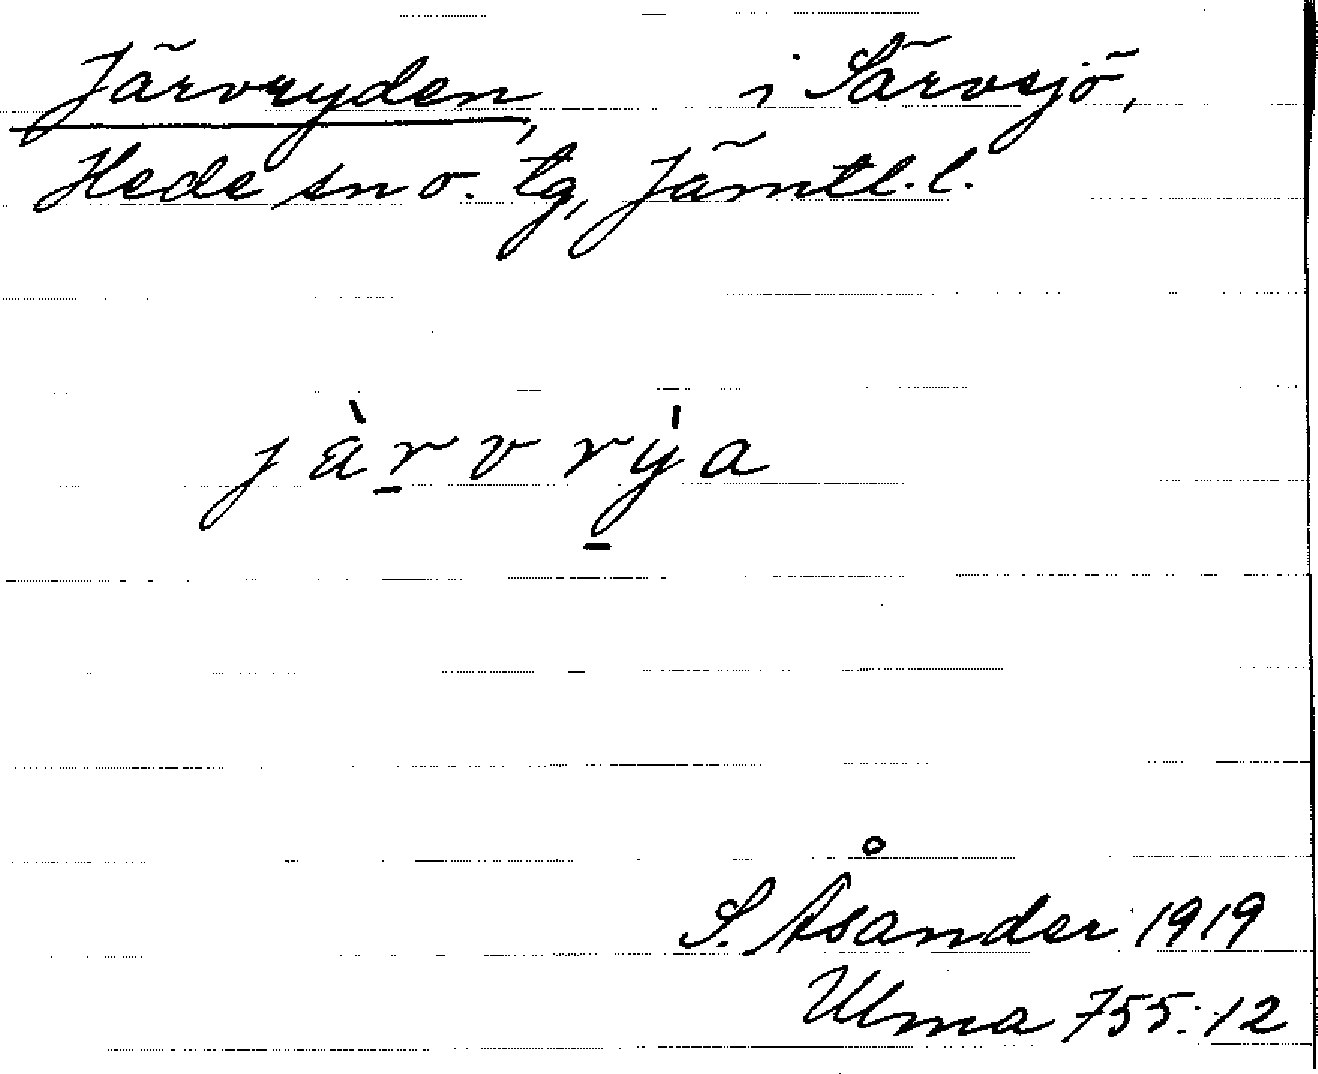 Järvryden, i Särvsjö,
Hede sn o. tg, Jämtl. l.
jàr̲vrý̲a
S. Åsander 1919
Ulma 755:12